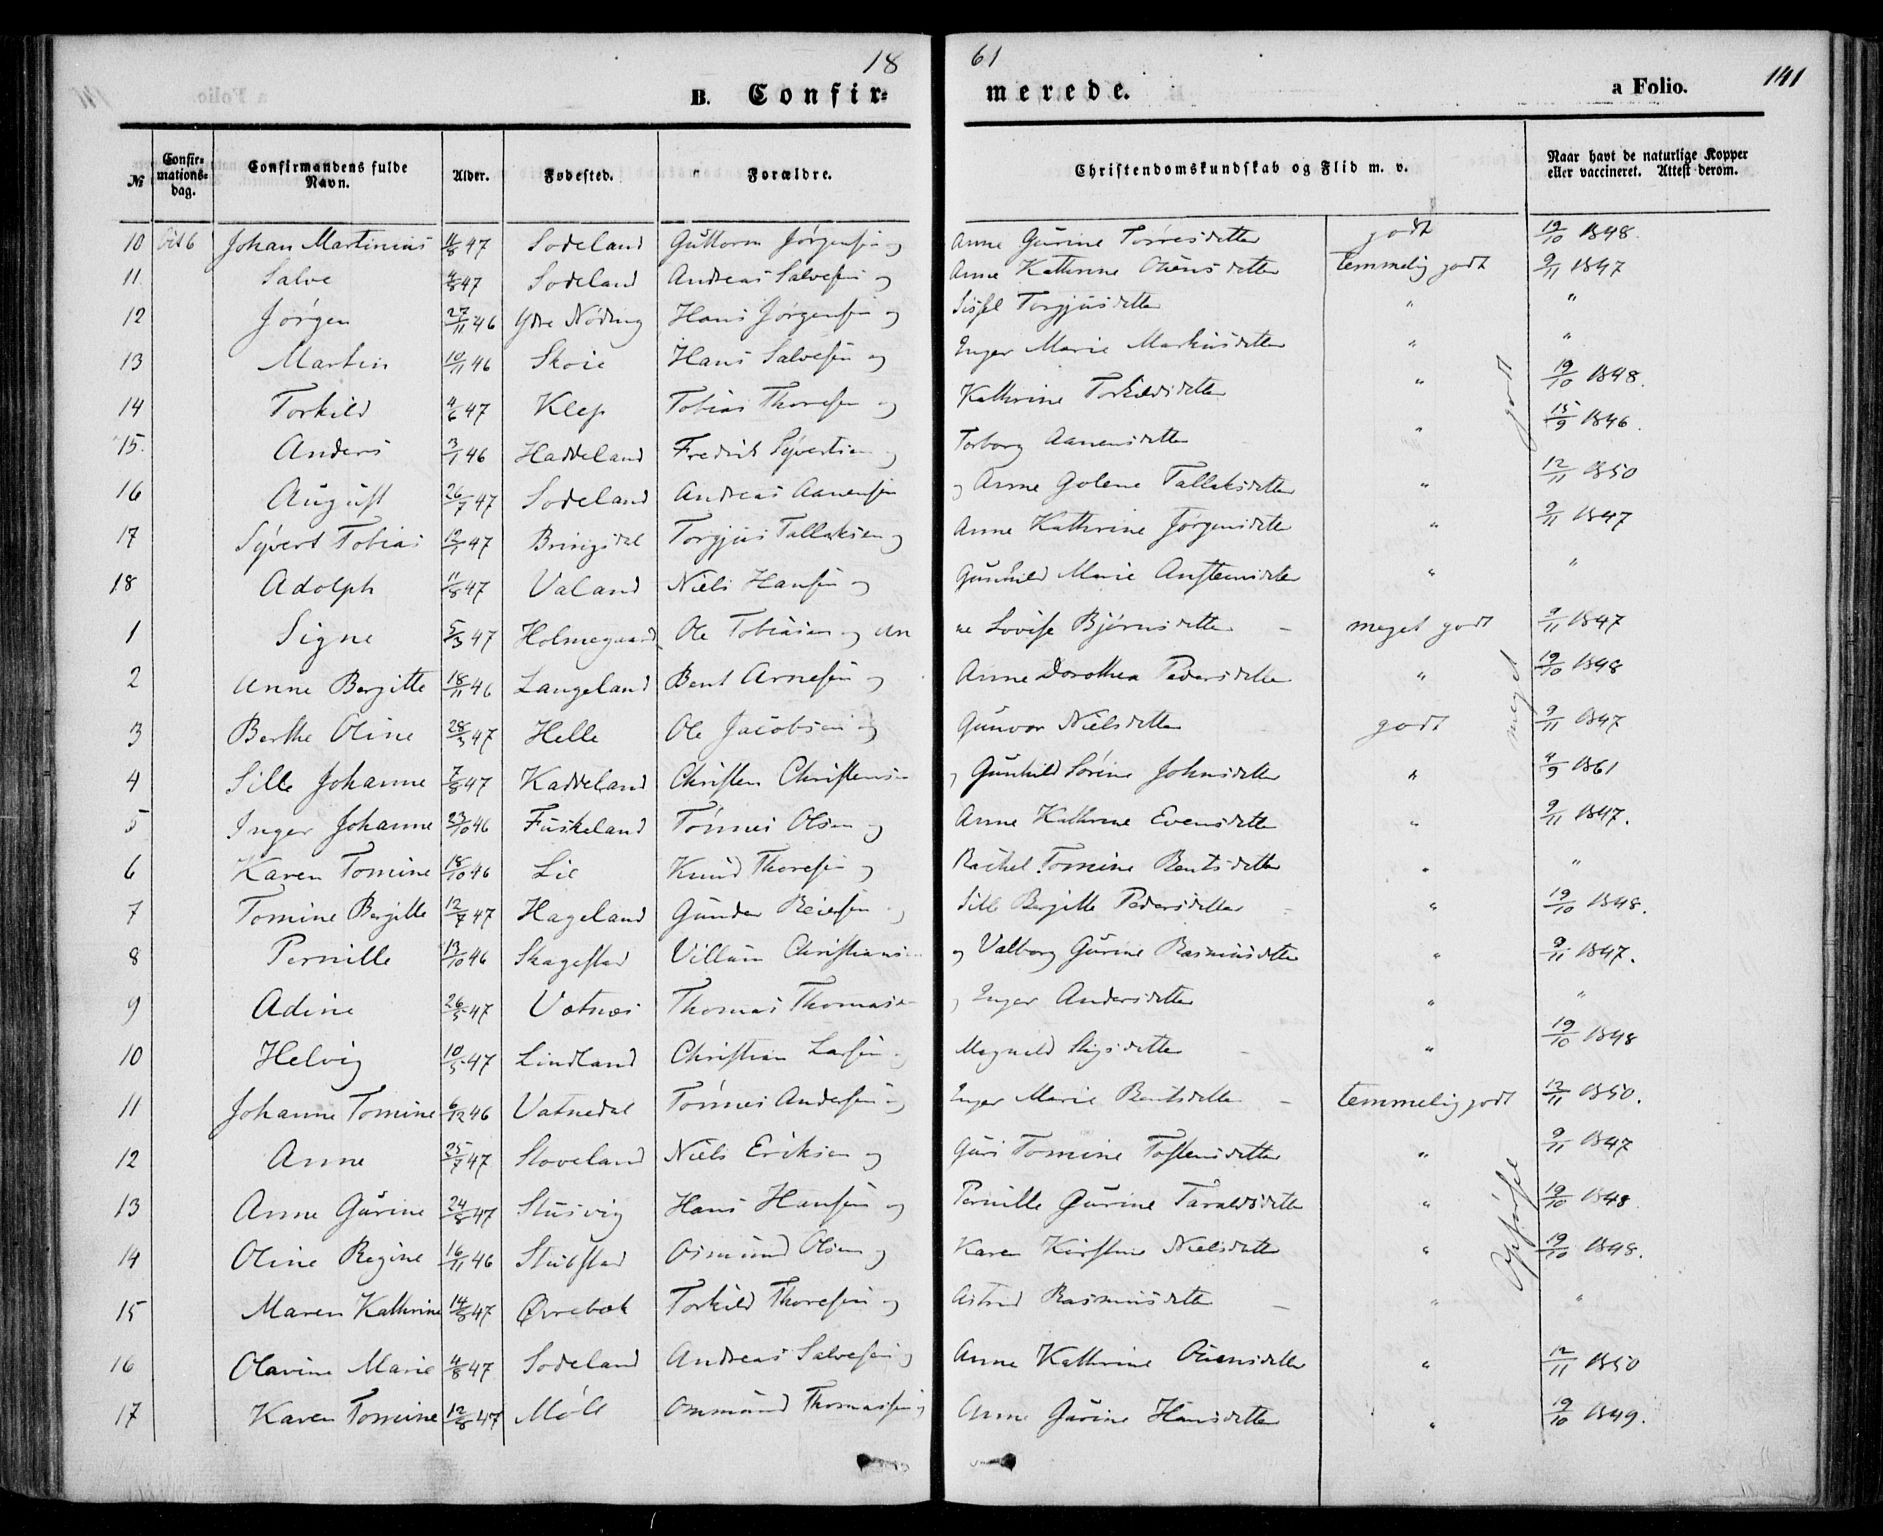 18 61
B. Confir= merede. a Folio. 141
№ Confir= mations= dag. Confirmandens fulde Navn. Alder. Fødested. Forældre. Christendomskundskab og Flid m. v. Naar havt de naturlige Kopper eller vaccineret. Attest derom.
10 Johan Martinius 47 Sodeland Guttorm Jørgensen og Anne Gurine Torresdatter godt 19/10 1848.
11. Salve 4/8 47 Sodeland Andreas Salvesen og Anne Kathrine datter temmelig godt 9/11 1847
12 Jørgen 27/11 46 Ydre Nøding Hans Jørgensen og Sissel Torgjusdatter " "
13 Martin 10/11 46 Skoie Hans Salvesen og Inger Marie Markusdatter " "
14 Torkild 4/6 47 Klep Tobias Thoresen og Kathrine Torkildsdatter " 19/10 1848.
15. Anders 3/1 46 Haddeland Fredrik Syvertsen og Torborg Aanensdatter " 15/9 1846.
16 August 26/7 47 Sodeland Andreas Aanensen og Anne Golene Tallaksdatter " 12/11 1850
17 Syvert Tobias 47 Bringsdal Torgjus Tallaksen og Anne Kathrine Jørgensdatter " 9/11 1847
18 Adolph 11/8 47 Valand Niels Hansen og Gunhild Marie Anstensdatter " "
1 Signe 5/3 47 Holmegaard Ole Tobiasen og Anne Lovise Bjørnsdatter – meget godt 9/11 1847
2 Anne Bergitte 18/11 46 Langeland Bent Arnesen og Anne Dorothea Pedersdatter " 19/10 1848
3 Berthe Oline 28/3 47 Helle Ole Jacobsen og Gunvor Nielsdatter godt 9/11 1847
4 Sille Johanne 7/8 47 Kaddeland Christen Christensen og Gunhild Sørine Johnsdatter " 4/9 1861
5 Inger Johanne 23/10 46 Fuskeland Tønnes Olsen og Anne Kathrine Evensdatter " 9/11 1847.
6 Karen Tomine 18/10 46 Lie Knud Thoresen og Rachel Tomine Bentsdatter " "
7 Tomine Bergitte 12/7 47 Hageland Gunder Reiersen og Sille Bergitte Pedersdatter " 19/10 1848.
8 Pernille 13/10 46 Skagestad Villum Christians og Valborg Gurine Rasmusdatter " 9/11 1847.
9 Adine 26/5 47 Vatnes Thomas Thomasen og Inger Andersdatter " "
10 Helvig 10/5 47 Lindland Christian Larsen og Magnild Stigsdatter " 19/10 1848
11 Johanne Tomine 6/12 46 Vatnedal Tønnes Andersen og Inger Marie Bentsdatter – temmelig godt 12/11 1850.
12 Anne 25/7 47 Stoveland Niels Eriksen og Guri Tomine Tostensdatter " 9/11 1847
13 Anne Gurine 24/8 47 Stusvig Hans Hansen og Pernille Gurine Taraldsdatter " 19/10 1848
14 Oline Regine 16/11 46 Stubstad Osmund Olsen og Karen Kirstine Nielsdatter " 19/10 1848.
15 Maren Kathrine 47 Øvrebøk Torkild Thoresen og Astrid Rasmusdatter – " "
16 Olavine Marie 4/8 47 Sodeland Andreas Salvesen og Anne Kathrine datter " 12/11 1850
17 Karen Tomine 12/8 47 Møll Ommund Thomassen og Anne Gurine Hansdatter " 19/10 1849.
Opførsel meget godt